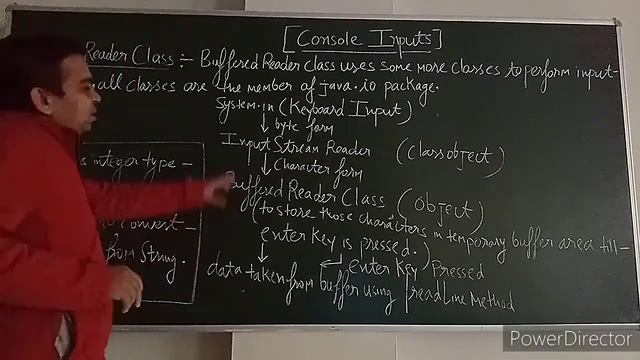 [Console Inputs]
Reader Class :- Buffered Reader class uses some more classes to perform input-
all classes are the member of java.io package.
System.in (Keyboard Input)
↓ byte form
Input Stream Reader (Class object)
↓ Character form
Buffered Reader Class (Object)
(to store those characters in temporary buffer area till-
enter key is pressed.)
↓ ← enter Key pressed
data taken from buffer using readLine Method
integer type -
to convert -
from String.
PowerDirector